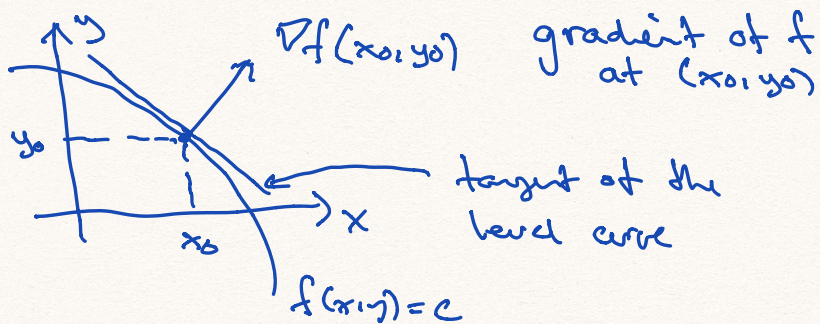 y
∇f(x0,y0)
gradient of f
at (x0,y0)
y0
tangent of the
level curve
x
x0
f(x,y)=c